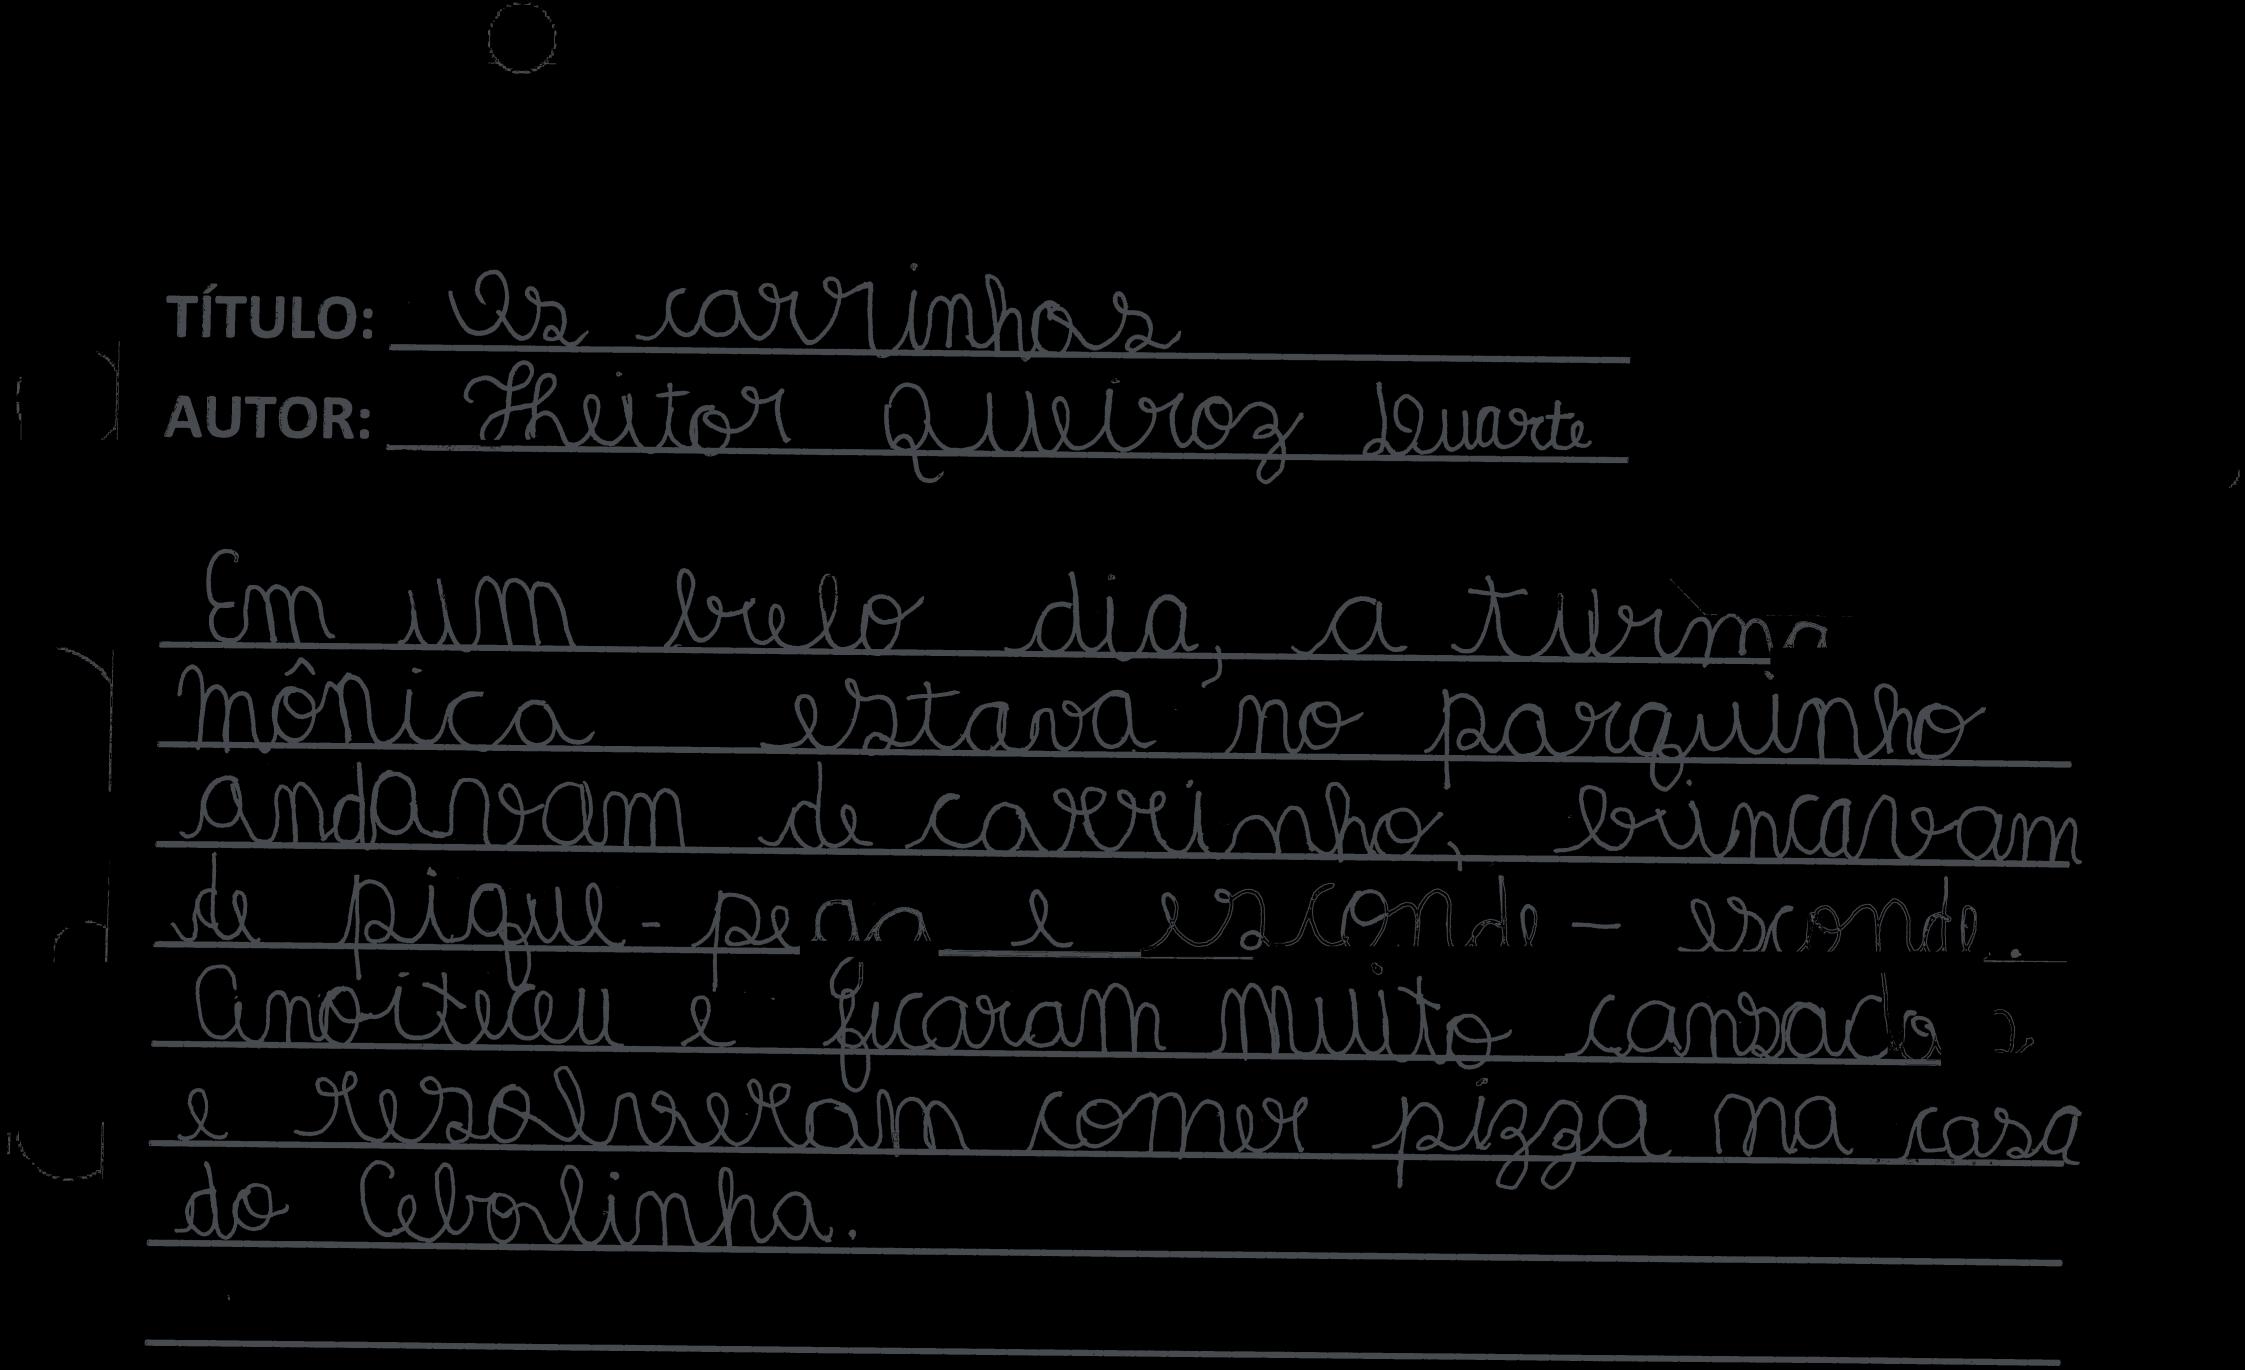 TÍTULO: Os carrinhos
AUTOR: Heitor Queiroz Duarte
Em um belo dia, a turma
mônica estava no parquinho
andavam de carrinho, brincavam
de pique-pega e esconde-esconde.
Anoiteceu e ficaram muito cansados
e resolveram comer pizza na casa
do Cebolinha.